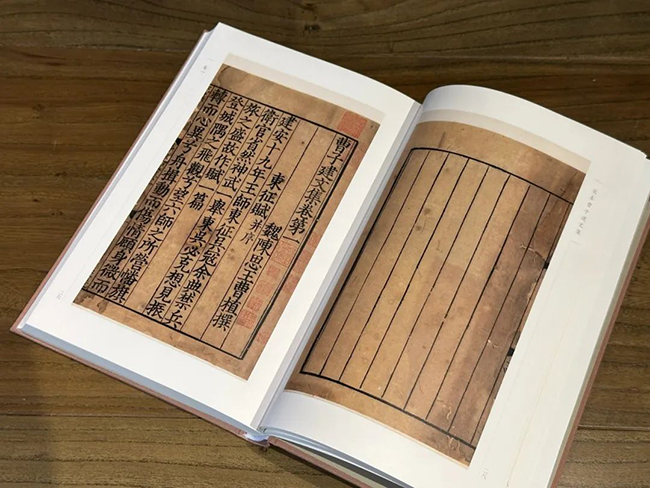 曹子建文集卷第一
魏陳思王曹植撰
東征賦 并序
建安十九年王師東征吳寇余典禁兵
衛官省然神武一舉東夷必克想見振
旅之盛故作賦一篇
登城隅之飛觀兮望六師之所營幡旗
轉而心異兮舟楫動而傷情顧身微而
宋本曹子建文集